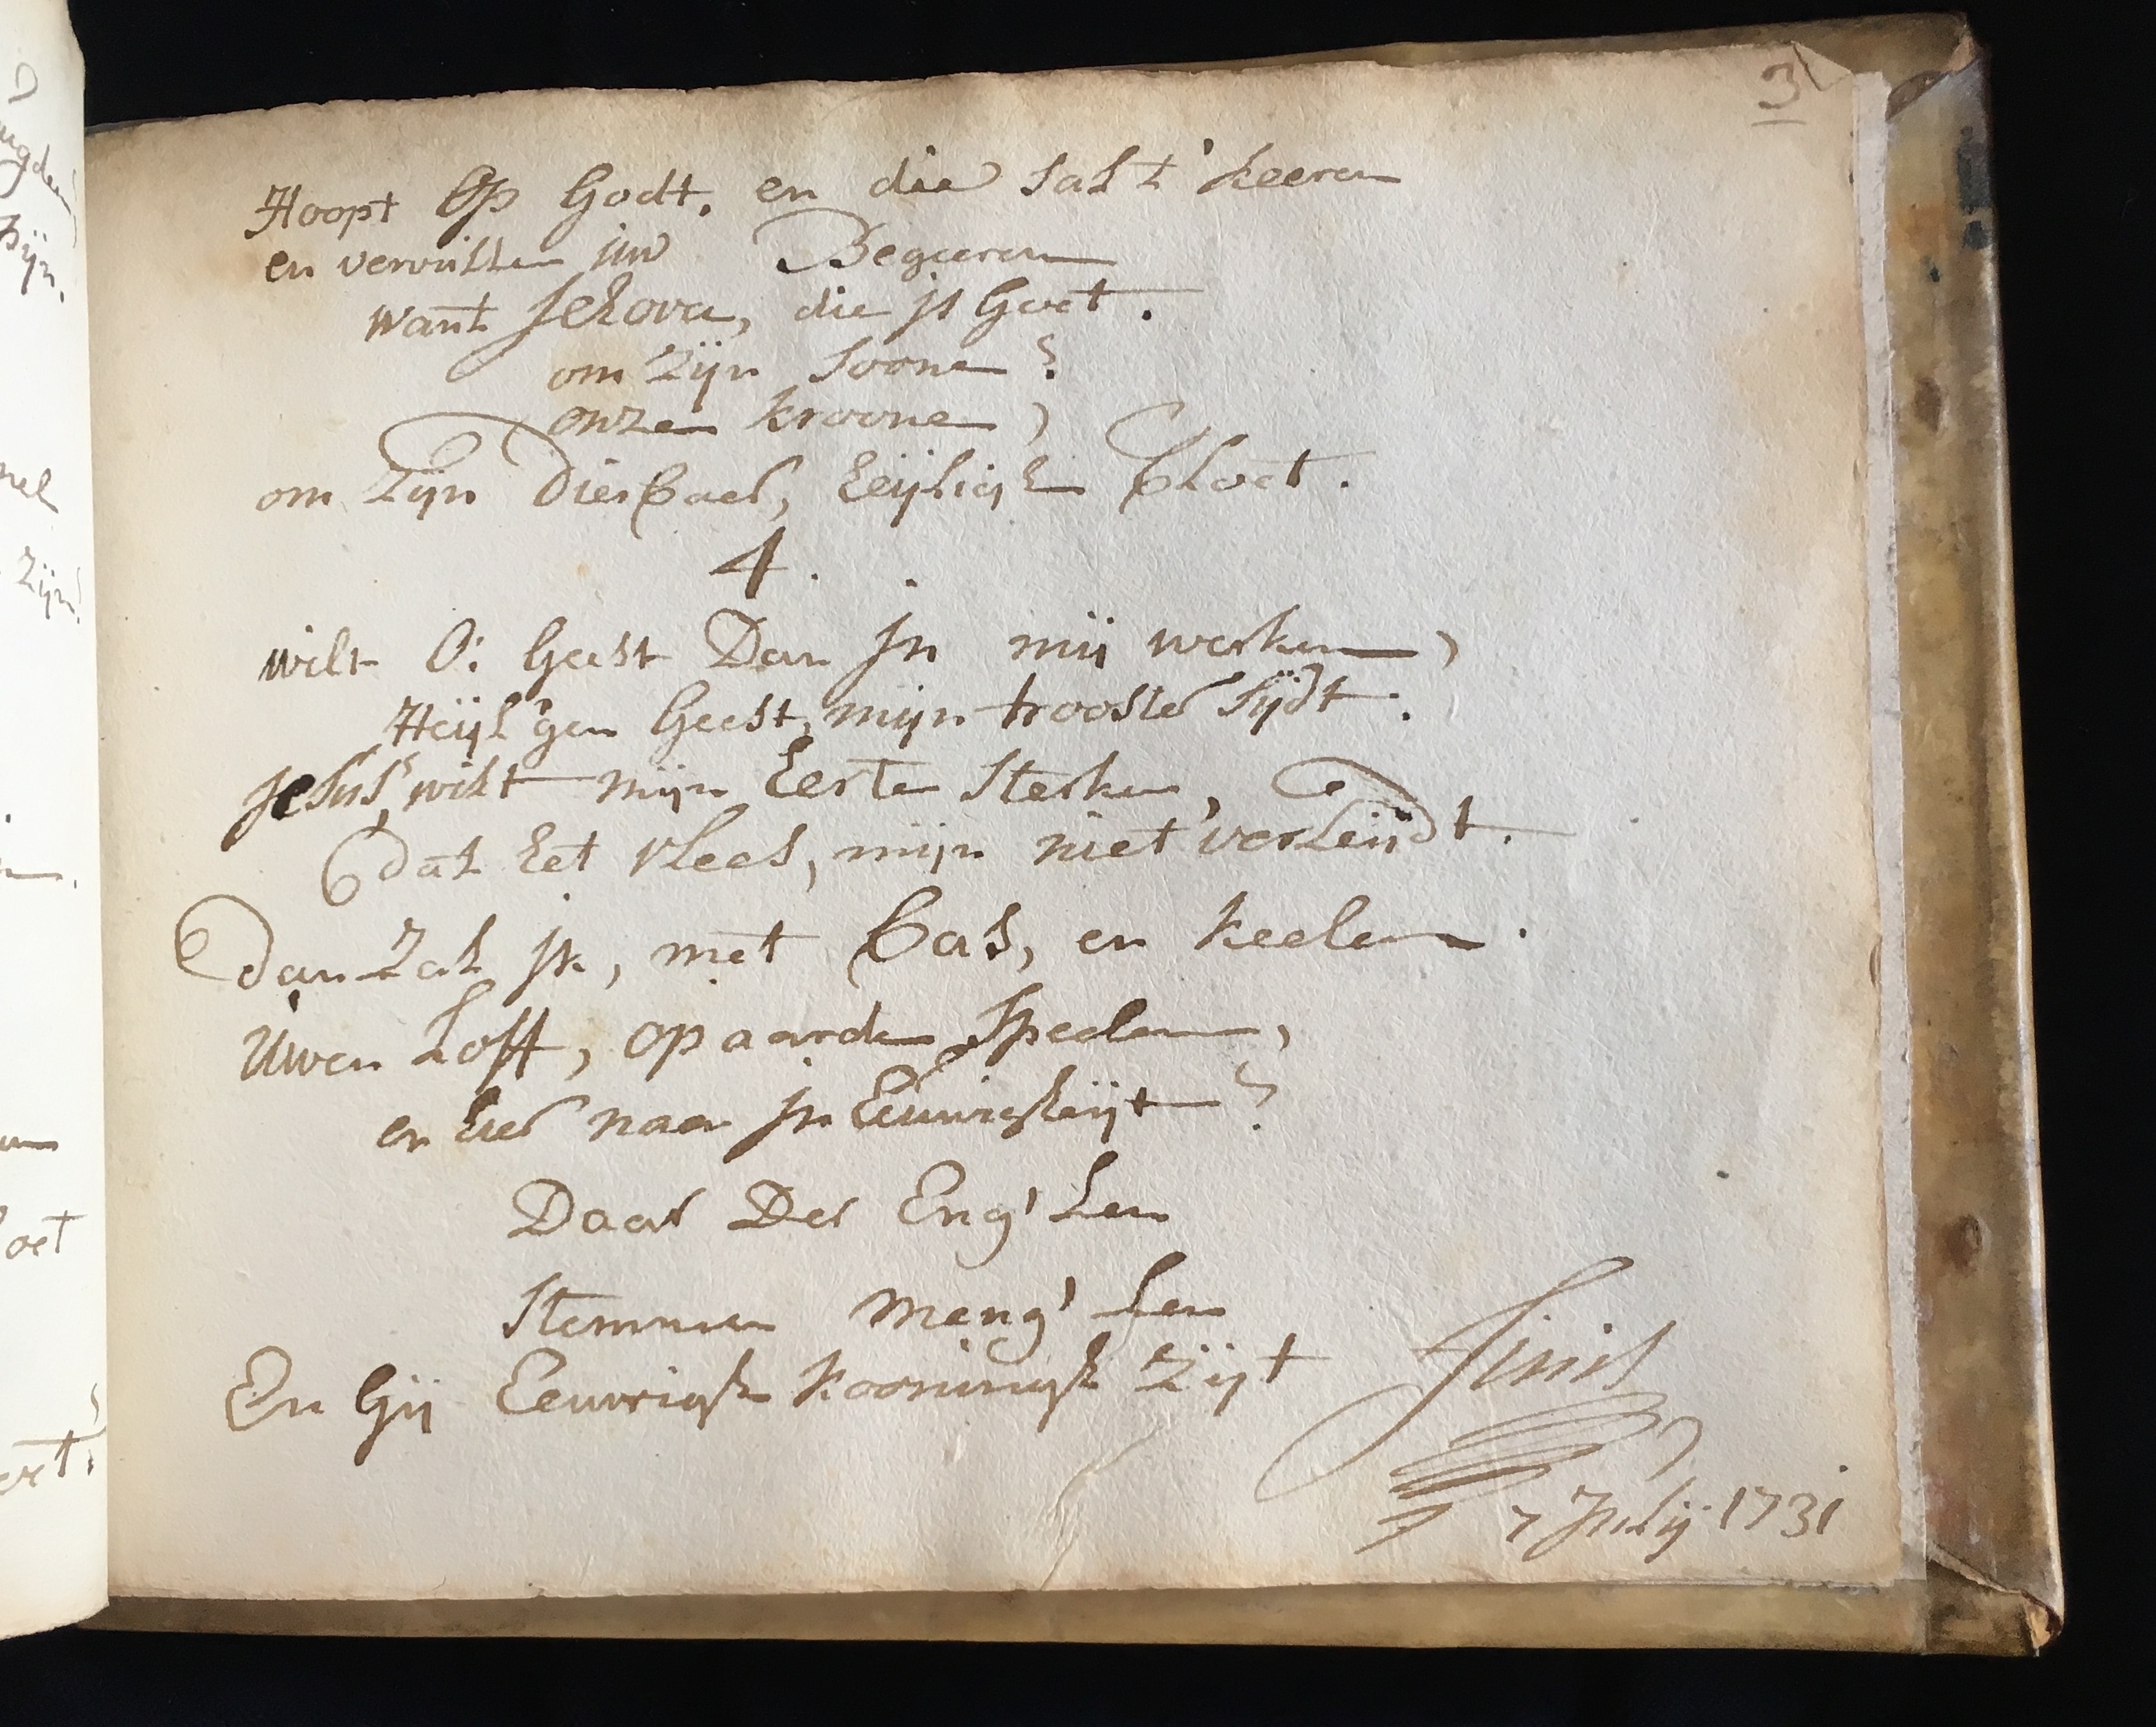 31
Hoopt op Godt, en die sal t' keeren
en vervullen uw Begeeren
want Jehova, die is Goet.
om Zijn Soone?
onzen kroone,
om Zijn Dierbaer, heijligh bloet.
4.
wilt O: Geest Dan In mij werken,
Heijl'gen Geest, mijn trooster sijdt.
Jesus, wilt mijn herte sterken,
dat het vlees, mijn niet verleijdt.
Dan Zal ik, met bas, en keelen.
Uwen Loff, op aarden speelen,
en hier naer In Eeuwigheijt?
Daar Der Eng'len
Stemmen meng'len
En Gij Eeuwigh Kooningh Zijt
Finis
7 Julij 1731
ugden
zijn.
nel
zijn!
oet